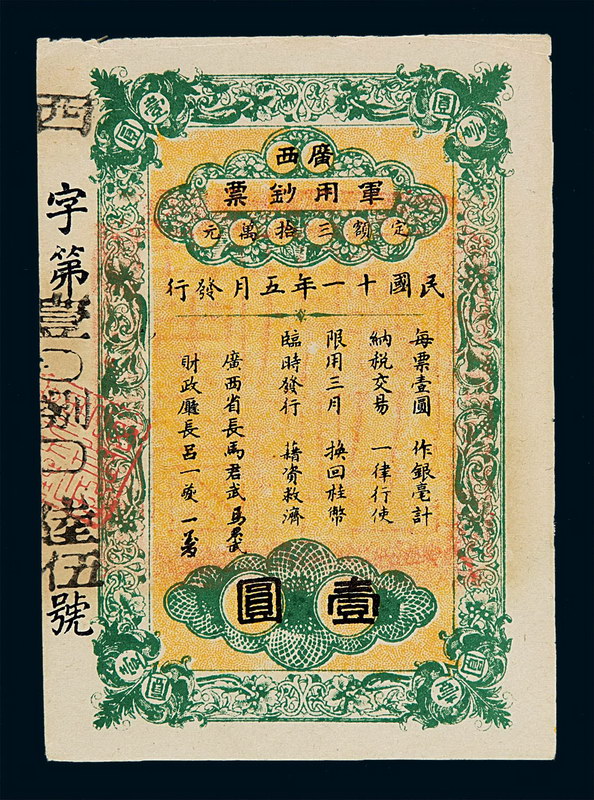 廣西
軍用鈔票
定額三拾萬元
民國十一年五月發行
每票壹圓 作銀毫計
納税交易 一律行使
限用三月 換回桂幣
臨時發行 藉資救濟
廣西省長馬君武 馬君武
財政廳長呂一夔 一夔
壹圓
壹圓
壹圓
壹圓
壹圓
四字第壹〇捌〇陸伍號